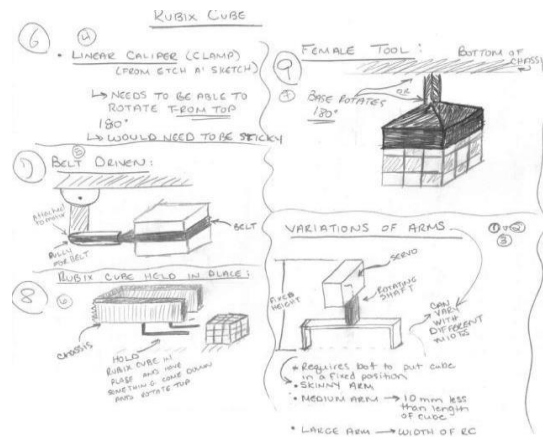 RUBIX CUBE
6
4
• LINEAR CALIPER (CLAMP)
(FROM ETCH A' SKETCH)
↳ NEEDS TO BE ABLE TO
ROTATE FROM TOP
180°
↳ WOULD NEED TO BE STICKY
7
5
BELT DRIVEN:
Attached
to motor
BELT
PULLY
FOR BELT
8
6
RUBIX CUBE HELD IN PLACE:
CHASSIS
HOLD
RUBIX CUBE IN
PLACE AND HAVE
SOMETHING COME DOWN
AND ROTATE TOP
9
FEMALE TOOL:
BOTTOM OF
CHASSIS
7
BASE ROTATES
OR
180°
VARIATIONS OF ARMS
1 or 2
3
SERVO
ROTATING
SHAFT
FIXED
HEIGHT
CAN
VARY
WITH
DIFFERENT
• Requires bot to put cube
in a fixed position
• SKINNY ARM
• MEDIUM ARM → 10 mm less
than length
of cube
• LARGE ARM → WIDTH OF RC